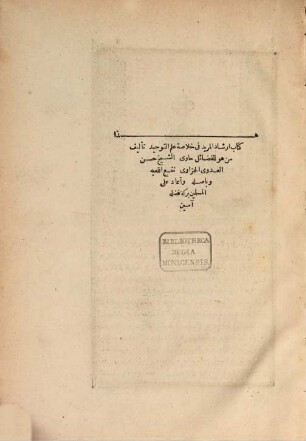 هـــــــــــذا
كتاب ارشاد المريد فى خلاصة علم التوحيد تأليف
من هو للفضائل حاوى الشيخ حسن
العدوى الحمزاوى نفع الله به
وباصله وأعاد على
المسلمين بركة فضله
آمين
BIBLIOTHECA
REGIA
MONACENSIS.